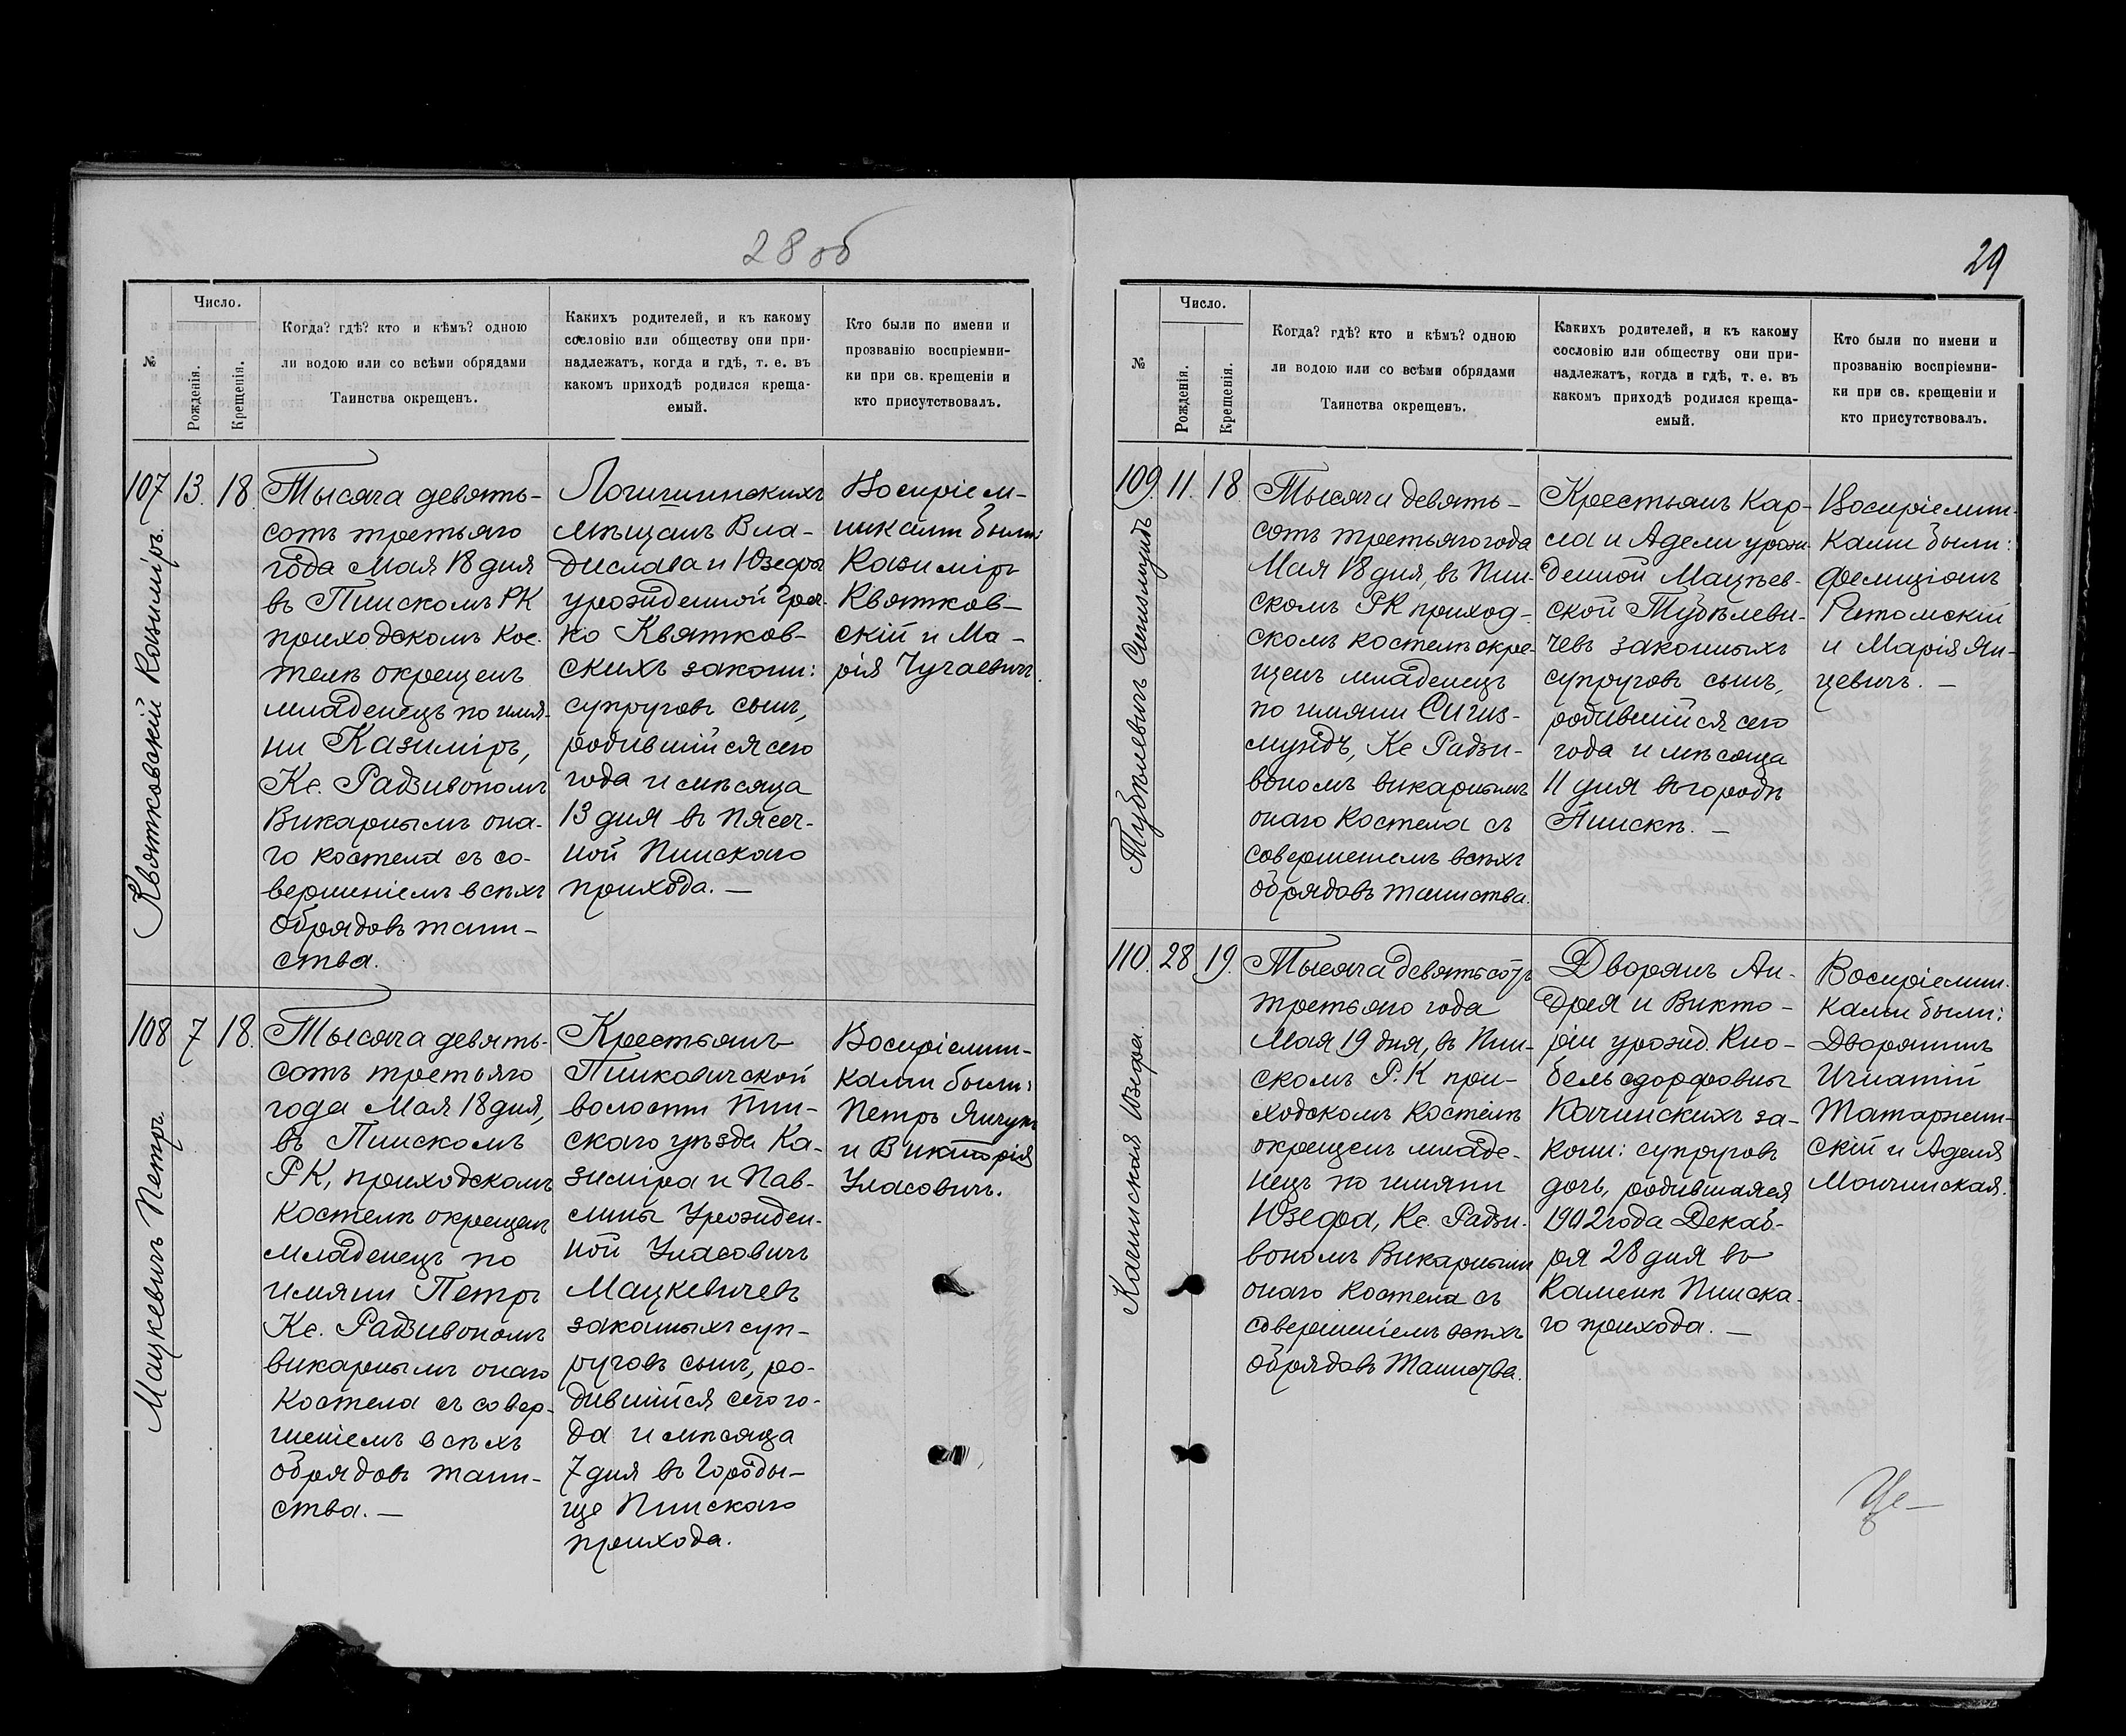 28 об
№
Число.
Рожденія.
Крещенія.
Когда? гдѣ? кто и кѣмъ? одною
ли водою или со всѣми обрядами
Таинства окрещенъ.
Какихъ родителей, и къ какому
сословію или обществу они при-
надлежатъ, когда и гдѣ, т. е. въ
какомъ приходѣ родился креща-
емый.
Кто были по имени и
прозванію воспріемни-
ки при св. крещеніи и
кто присутствовалъ.
107
13.
18.
Квятковскій Казиміръ.
Тысяча девять-
сотъ третьяго
года Мая 18 дня
въ Пинскомъ РК
приходскомъ Кос-
телѣ окрещенъ
младенецъ по имя-
ни Казиміръ,
Кс. Радзивономъ
Викарнымъ она-
го костела съ со-
вершеніемъ всѣхъ
обрядовъ таин-
ства.
Логишинскихъ
мѣщанъ Вла-
дислава и Юзефы
урожденной
ко Квятков-
скихъ законн:
супруговъ сынъ,
родившійся сего
года и мѣсяца
13 дня въ Пясеч-
ной Пинскаго
прихода. —
Воспріем-
никами были:
Казиміръ
Квятков-
скій и Ма-
рія Чугаевичъ.
108
7
18.
Мацкевичъ Петръ.
Тысяча девять-
сотъ третьяго
года Мая 18 дня,
въ Пинскомъ
РК, приходскомъ
Костелѣ окрещенъ
младенецъ по
имяни Петръ
Кс. Радзивономъ
викарнымъ онаго
Костела съ совер-
шеніемъ всѣхъ
обрядовъ таин-
ства. —
Крестьянъ
Пинковичской
волости Пин-
скаго уѣзда Ка-
зиміра и Пав-
лины Урожден-
ной Уласовичъ
Мацкевичевъ
законныхъ суп-
руговъ сынъ, ро-
дившійся сего го-
да и мѣсяца
7 дня въ Городы-
ще Пинскаго
прихода.
Воспріемни-
ками были:
Петръ Янчукъ
и Викторія
Уласовичъ.
29
№
Число.
Рожденія.
Крещенія.
Когда? гдѣ? кто и кѣмъ? одною
ли водою или со всѣми обрядами
Таинства окрещенъ.
Какихъ родителей, и къ какому
сословію или обществу они при-
надлежатъ, когда и гдѣ, т. е. въ
какомъ приходѣ родился креща-
емый.
Кто были по имени и
прозванію воспріемни-
ки при св. крещеніи и
кто присутствовалъ.
109.
11.
18.
Тубѣлевичъ Сигизмундъ
Тысяча девять-
сотъ третьяго года
Мая 18 дня, въ Пин-
скомъ РК приход-
скомъ костелѣ окре-
щенъ младенецъ
по имяни Сигиз-
мундъ, Кс Радзи-
вономъ викарнымъ
онаго Костела съ
совершеніемъ всѣхъ
обрядовъ таинства.
Крестьянъ Кар-
ла и Адели урож-
денной Мацѣев-
ской Тубѣлеви-
чевъ законныхъ
супруговъ сынъ,
родившійся сего
года и мѣсяца
11 дня въ городѣ
Пинскѣ. —
Воспріемни-
ками были:
Фелиціанъ
Ритомскій
и Марія Ян-
цевичъ. —
110.
28
19.
Качинская Юзефа.
Тысяча девятьсотъ
третьяго года
Мая 19 дня, въ Пин-
скомъ Р.К при-
ходскомъ Костелѣ
окрещенъ младе-
нецъ по имяни
Юзефа, Кс. Радзи-
вономъ Викарнымъ
онаго Костела съ
совершеніемъ всѣхъ
обрядовъ Таинства.
Дворянъ Ан-
дрея и Викто-
ріи урожд. Кно-
бельсдорфовны
Качинскихъ за-
конн: супруговъ
дочь, родившаяся
1902 года Декаб-
ря 28 дня въ
Каменѣ Пинска-
го прихода. —
Воспріемни-
ками были:
Дворянинъ
Игнатій
Татаржин-
скій и Аделя
Мончинская.